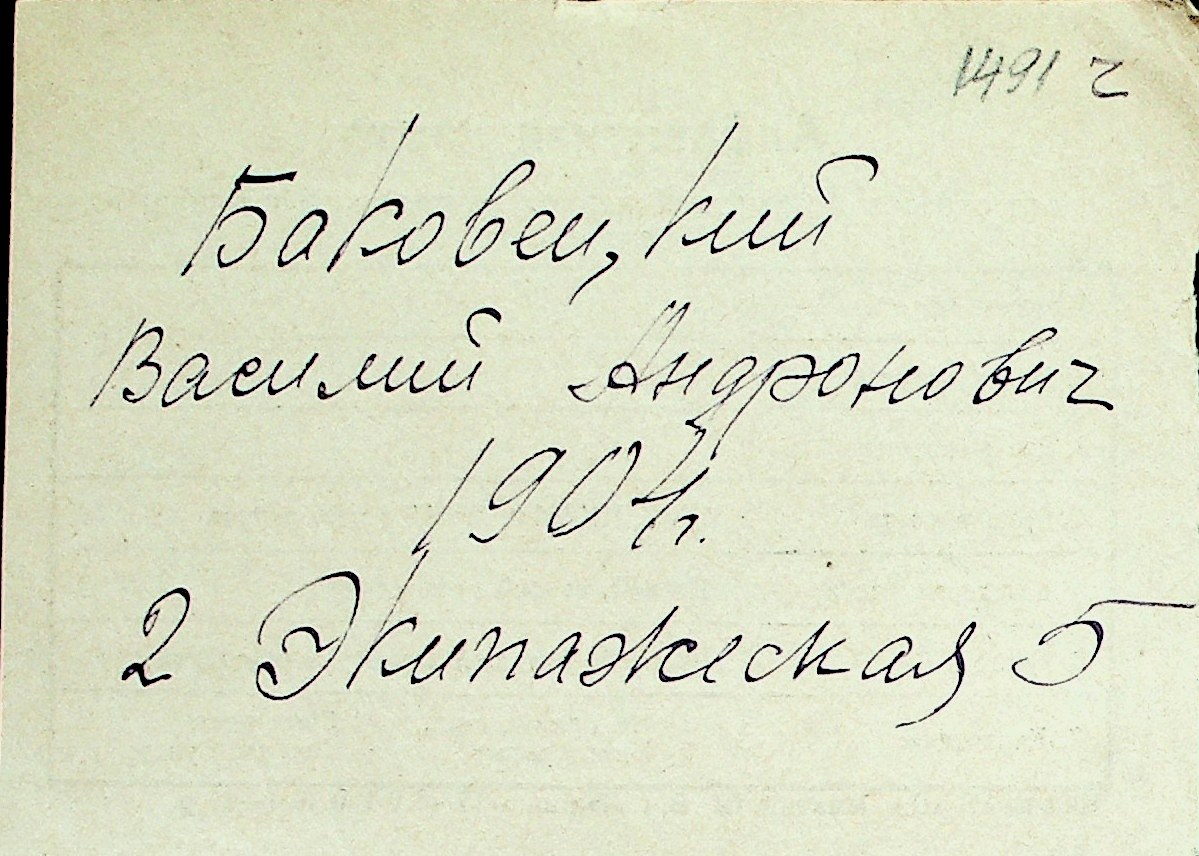 1491 г
Баковецкий
Василий Андронович
1904г.
2 Экипажеская 5